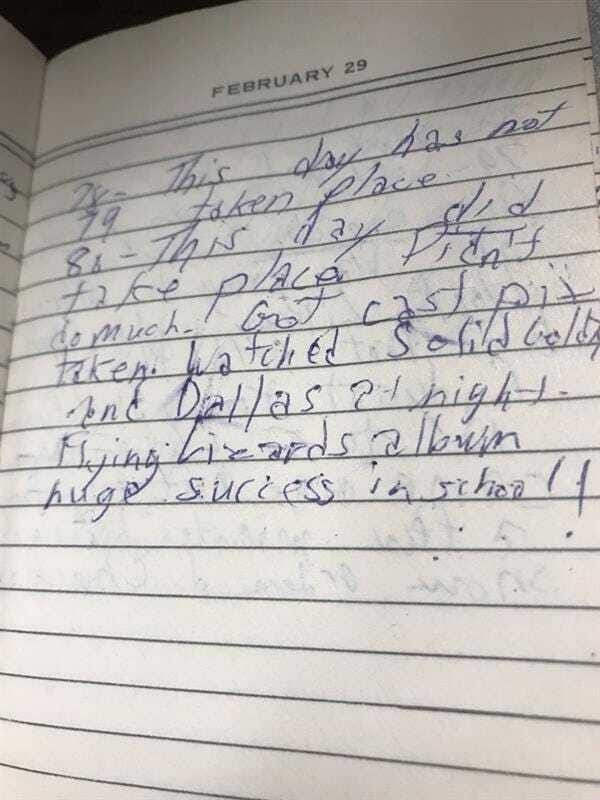 FEBRUARY 29
78- This day has not
79 taken place.
80- This day did
take place Didn't
do much. Got cast pix
taken. Watched Solid Gold
and Dallas at night.
Flying Lizards album
huge success in school!!